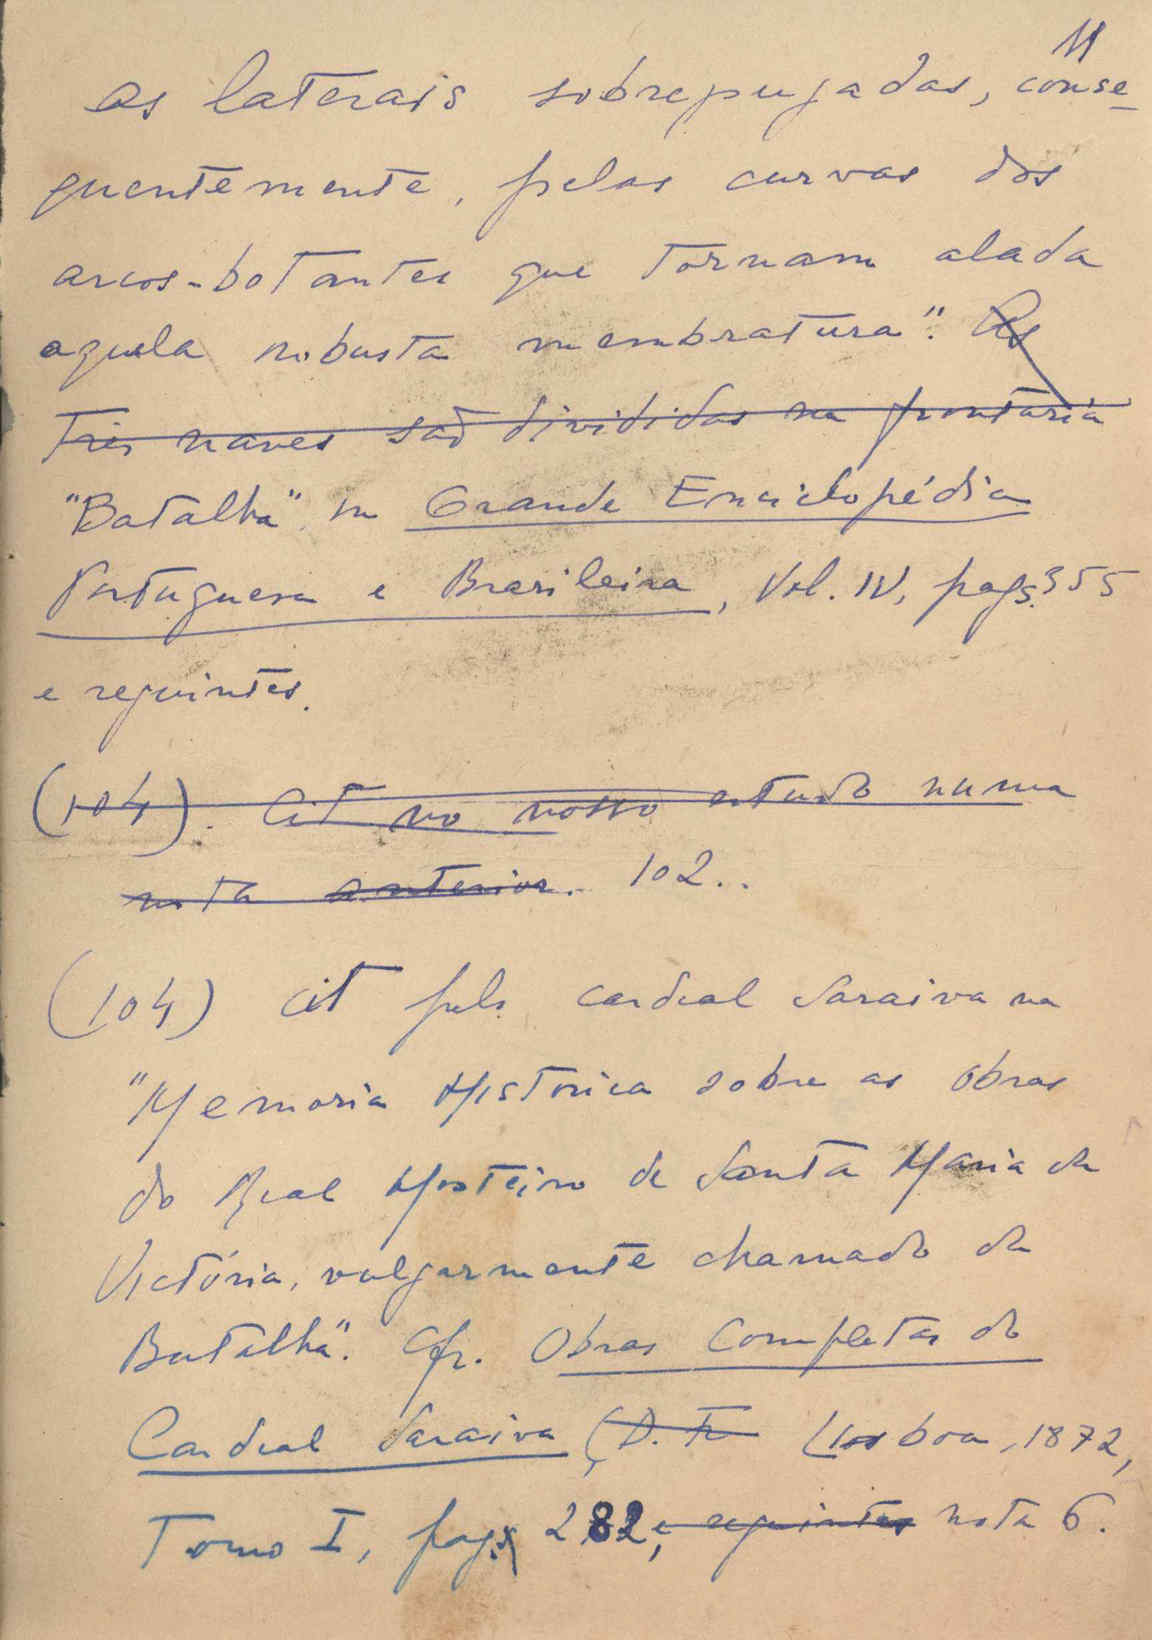 11
as laterais sobrepujadas, conse-
quentemente, pelas curvas dos
arcos-botantes que tornam alada
aquela robusta membratura". As
três naves são divididas na frontaria
"Batalha" in Grande Enciclopédia
Portuguesa e Brasileira, Vol. IV, pags. 355
e seguintes.
(104). Cit no nosso estudo numa
nota anterior. 102..
(104) Cit pelo cardeal Saraiva na
"Memoria Historica sobre as obras
do Real Mosteiro de Santa Maria da
Victória, vulgarmente chamado da
Batalha". Cfr. Obras Completas do
Cardeal Saraiva, (D. Fr Lisboa, 1872,
Tomo I, pag. 282, e seguintes nota 6.